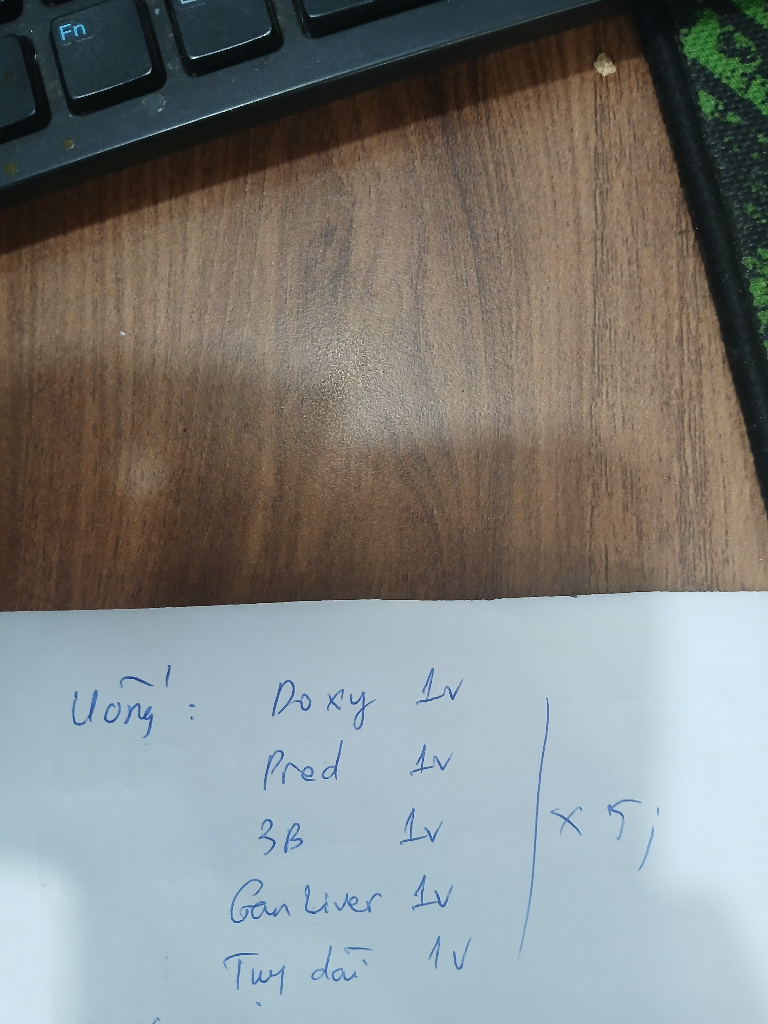 Fn
Uống: Doxy 1v
Pred 1v
3B 1v
Gan Liver 1v
Tụy dài 1v
x 5j